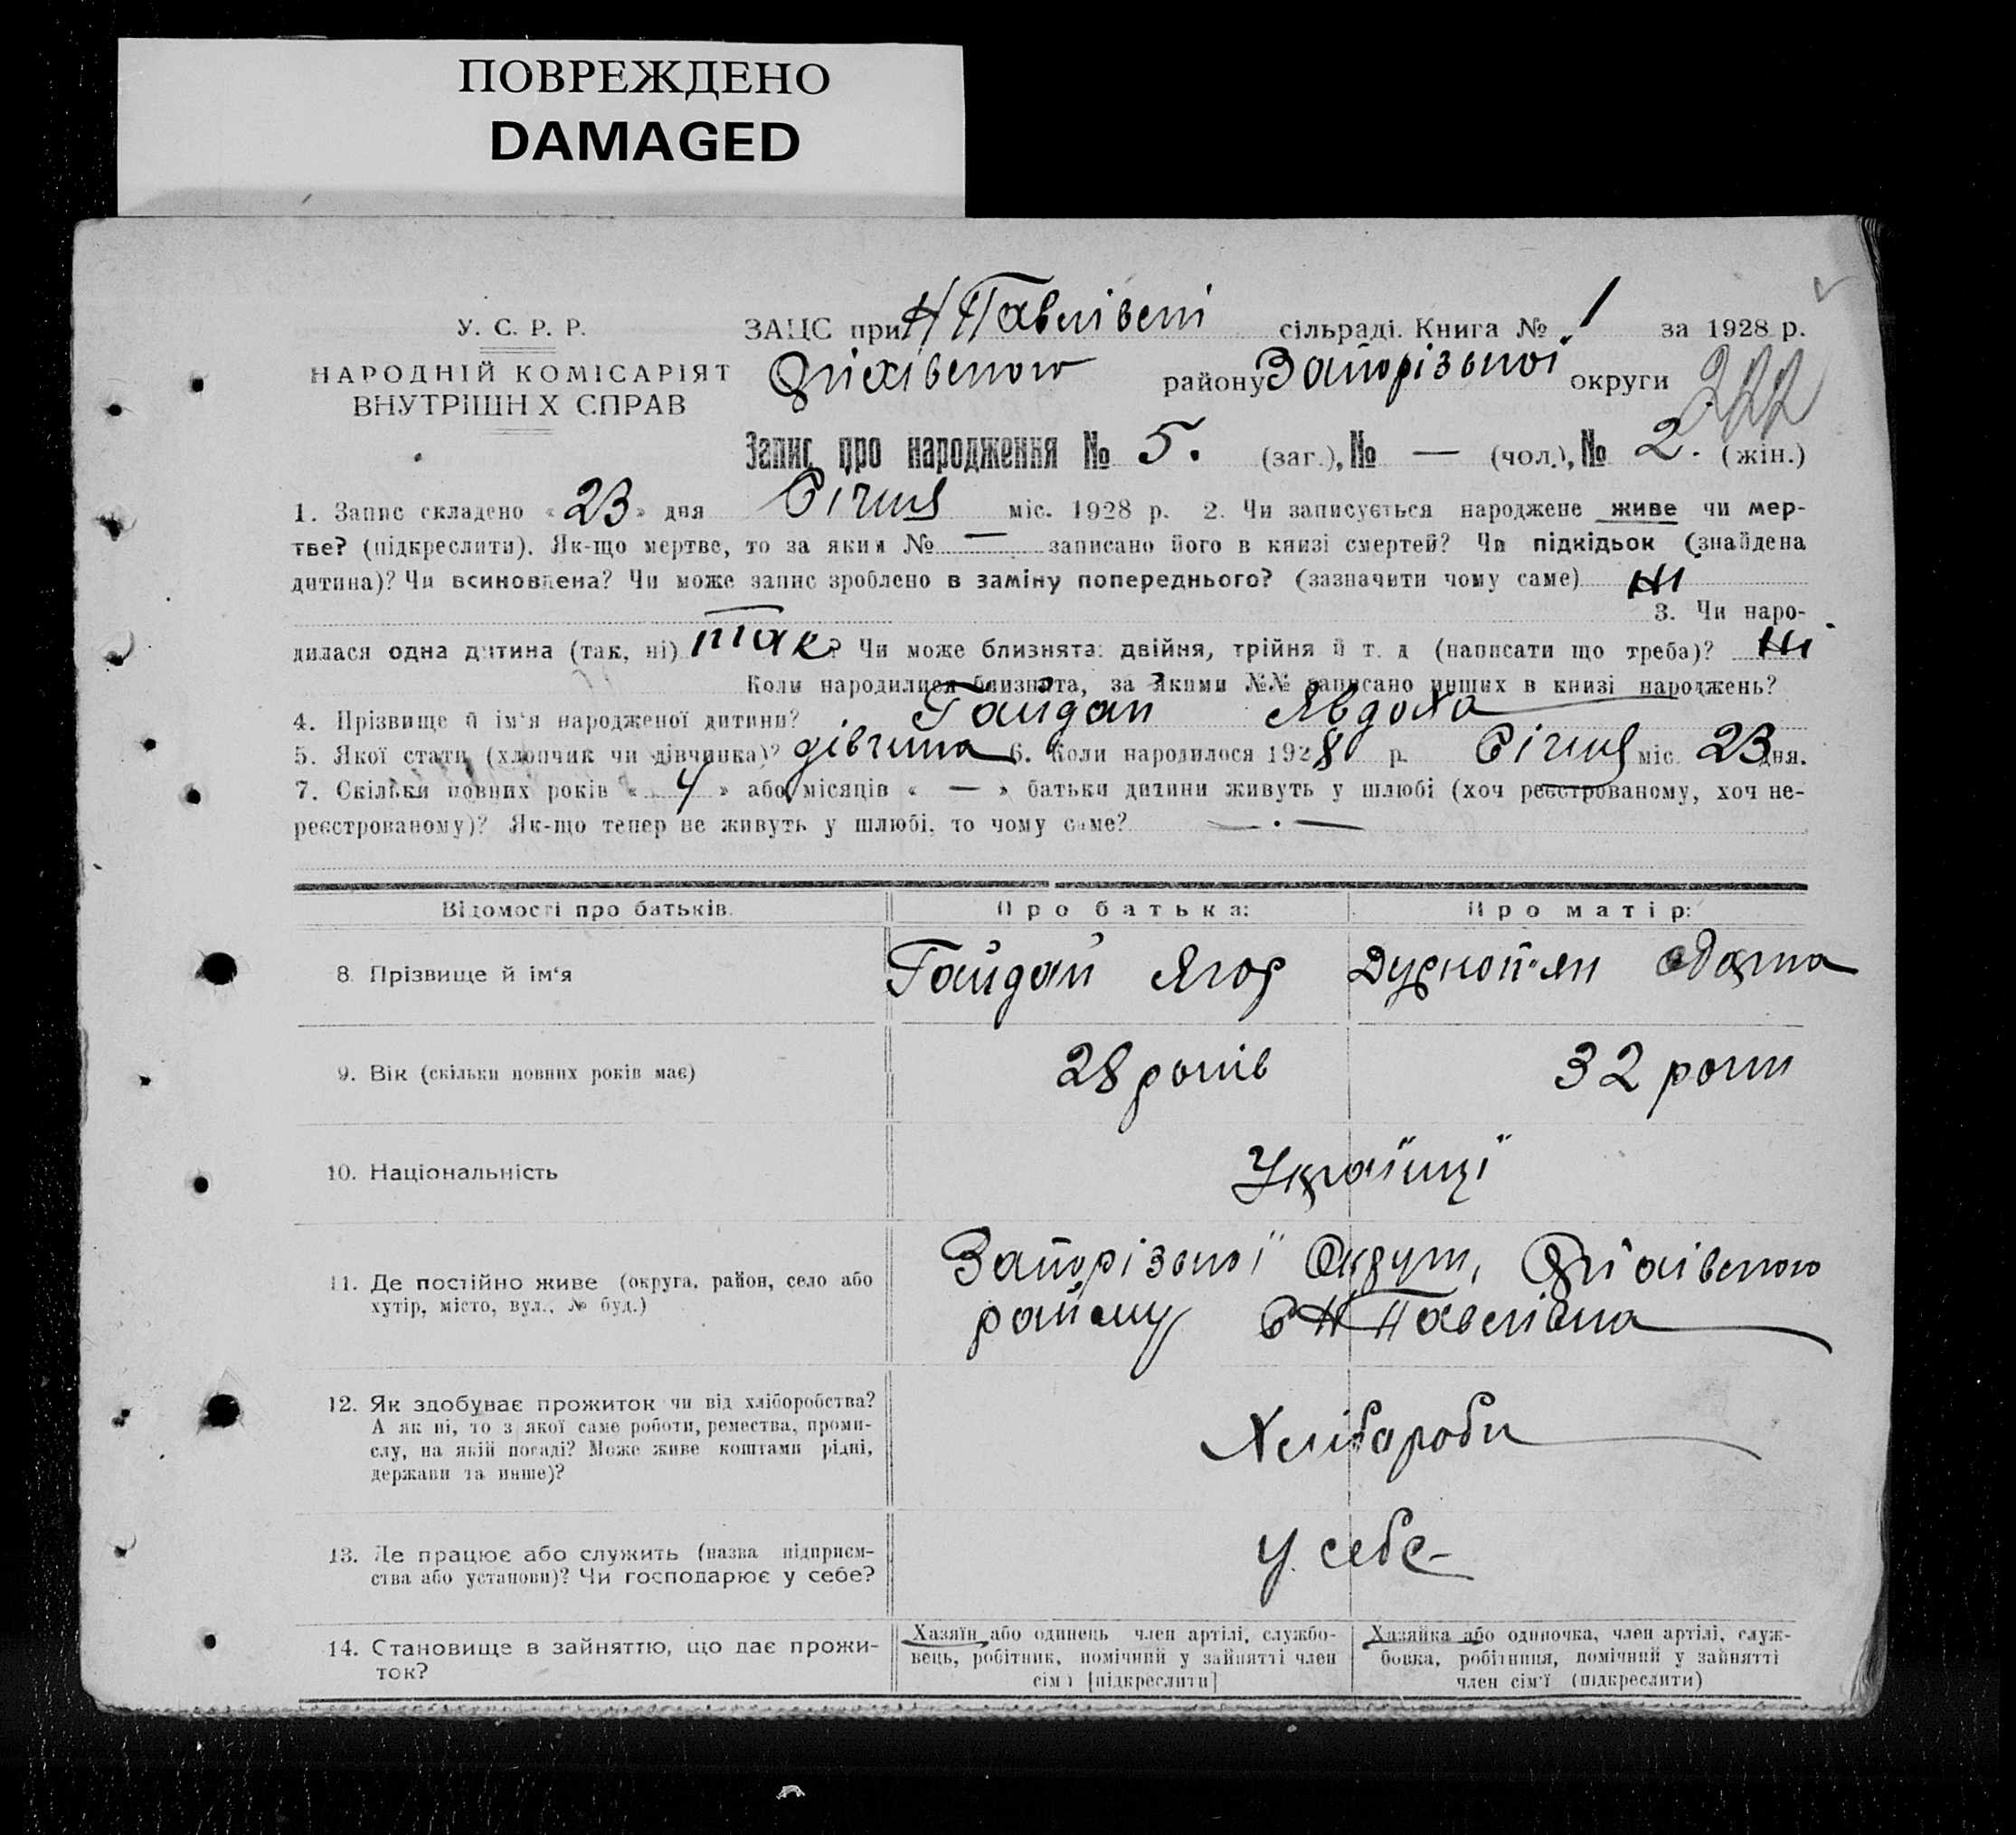 ПОВРЕЖДЕНО
DAMAGED
У. С. Р. Р.
НАРОДНІЙ КОМІСАРІЯТ
ВНУТРІШН Х СПРАВ
ЗАЦС при Н Павлівкі сільраді. Книга № 1 за 1928 р.
району Запорізької округи
222
Запис про народження № 5. (заг.), № — (чол.), № 2. (жін.)
1. Запис складено «23» дня Січня міс. 1928 р. 2. Чи записується народжене живе чи мер-
тве? (підкреслити). Як-що мертве, то за яким № — записано його в книзі смертей? Чи підкідьок (знайдена
дитина)? Чи всиновлена? Чи може запис зроблено в заміну попереднього? (зазначити чому саме) Ні
3. Чи наро-
дилася одна дитина (так, ні) так? Чи може близнята: двійня, трійня й т. д (написати що треба)? Ні
Коли народилися близнята, за якими №№ записано инших в книзі народжень?
4. Прізвище й ім'я народженої дитини? Гайдай Явдоха
5. Якої стати (хлопчик чи дівчинка)? дівчина 6. Коли народилося 1928 р. Січня міс. 23 дня.
7. Скільки повних років «4» або місяців « — » батьки дитини живуть у шлюбі (хоч реєстрованому, хоч не-
реєстрованому)? Як-що тепер не живуть у шлюбі, то чому саме? — . —
Відомості про батьків. Про батька: Про матір:
8. Прізвище й ім'я Гайдай Ягор Дурноп'ян Одарка
9. Вік (скільки повних років має) 28 років 32 роки
10. Національність Українці
11. Де постійно живе (округа, район, село або
хутір, місто, вул., № буд.)
Запорізької Округи,
району С Н Павлівка
12. Як здобуває прожиток чи від хліборобства?
А як ні, то з якої саме роботи, ремества, проми-
слу, на якій посаді? Може живе коштами рідні,
держави та инше)?
Хлібароби
13. Де працює або служить (назва підприєм-
ства або установи)? Чи господарює у себе?
У себе
14. Становище в зайняттю, що дає прожи-
ток?
Хазяїн або одинець член артілі, службо-
вець, робітник, помічний у зайнятті член
сім ї [підкреслити]
Хазяйка або одиночка, член артілі, служ-
бовка, робітниця, помічний у зайнятті
член сім'ї (підкреслити)